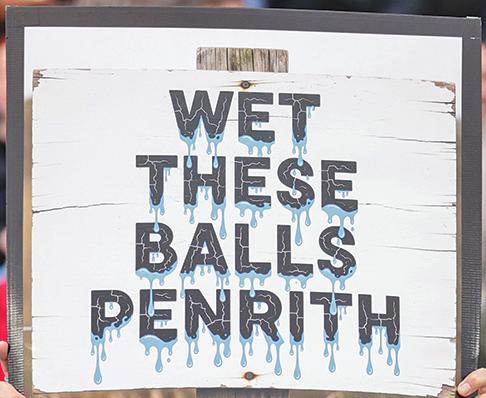 WET
THESE
BALLS
PENRITH